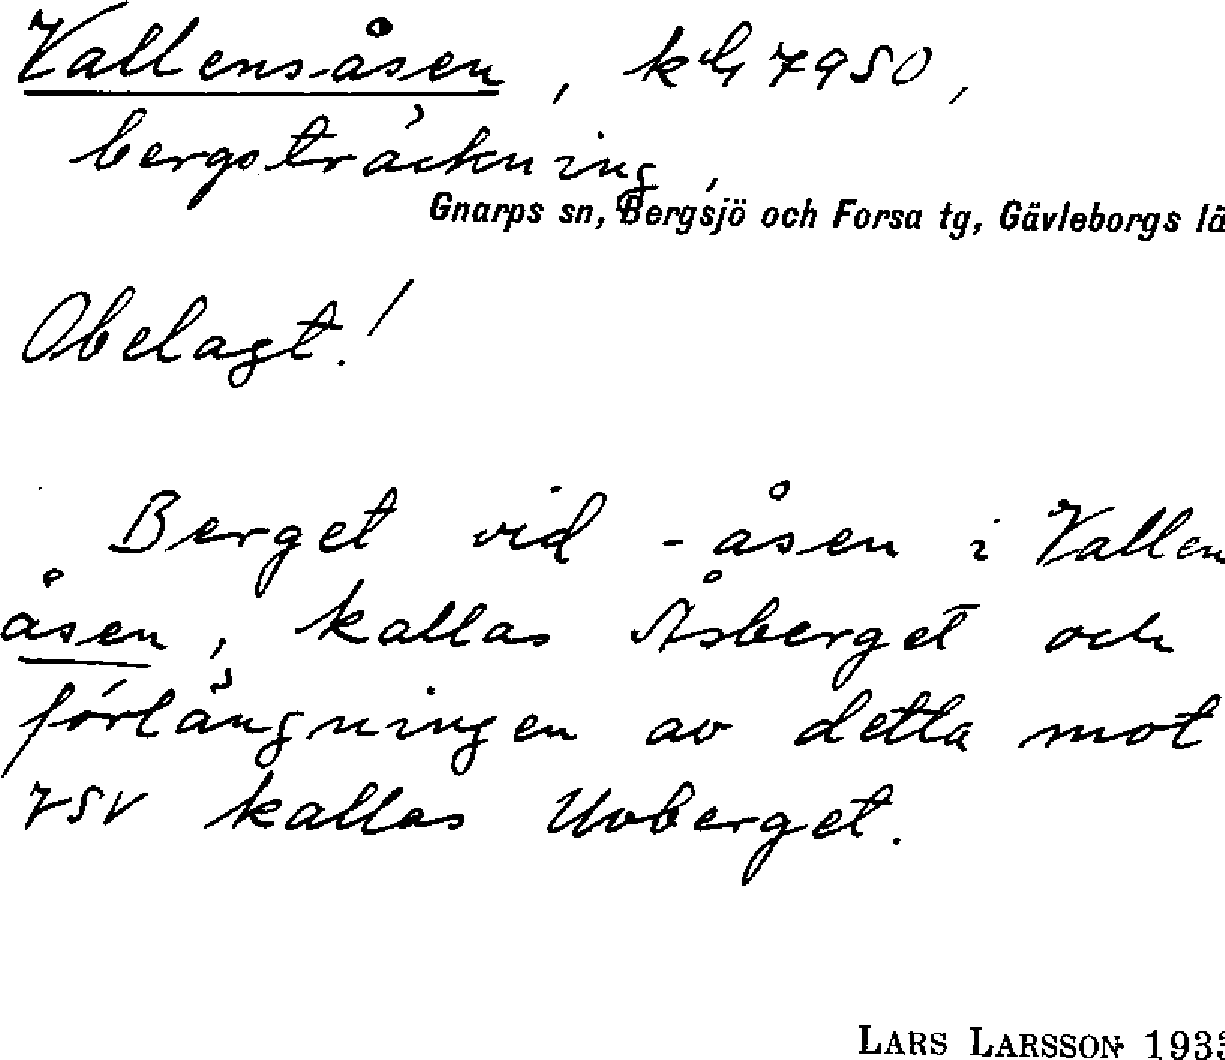 Vallens-åsen, kbl 7950,
bergsträckning,
Gnarps sn, Bergsjö och Forsa tg, Gävleborgs lä
Obelagt!
Berget vid -åsen i Vallen
åsen, kallas Åsberget och
förlängningen av detta mot
VSV kallas Uvberget.
LARS LARSSON 1933